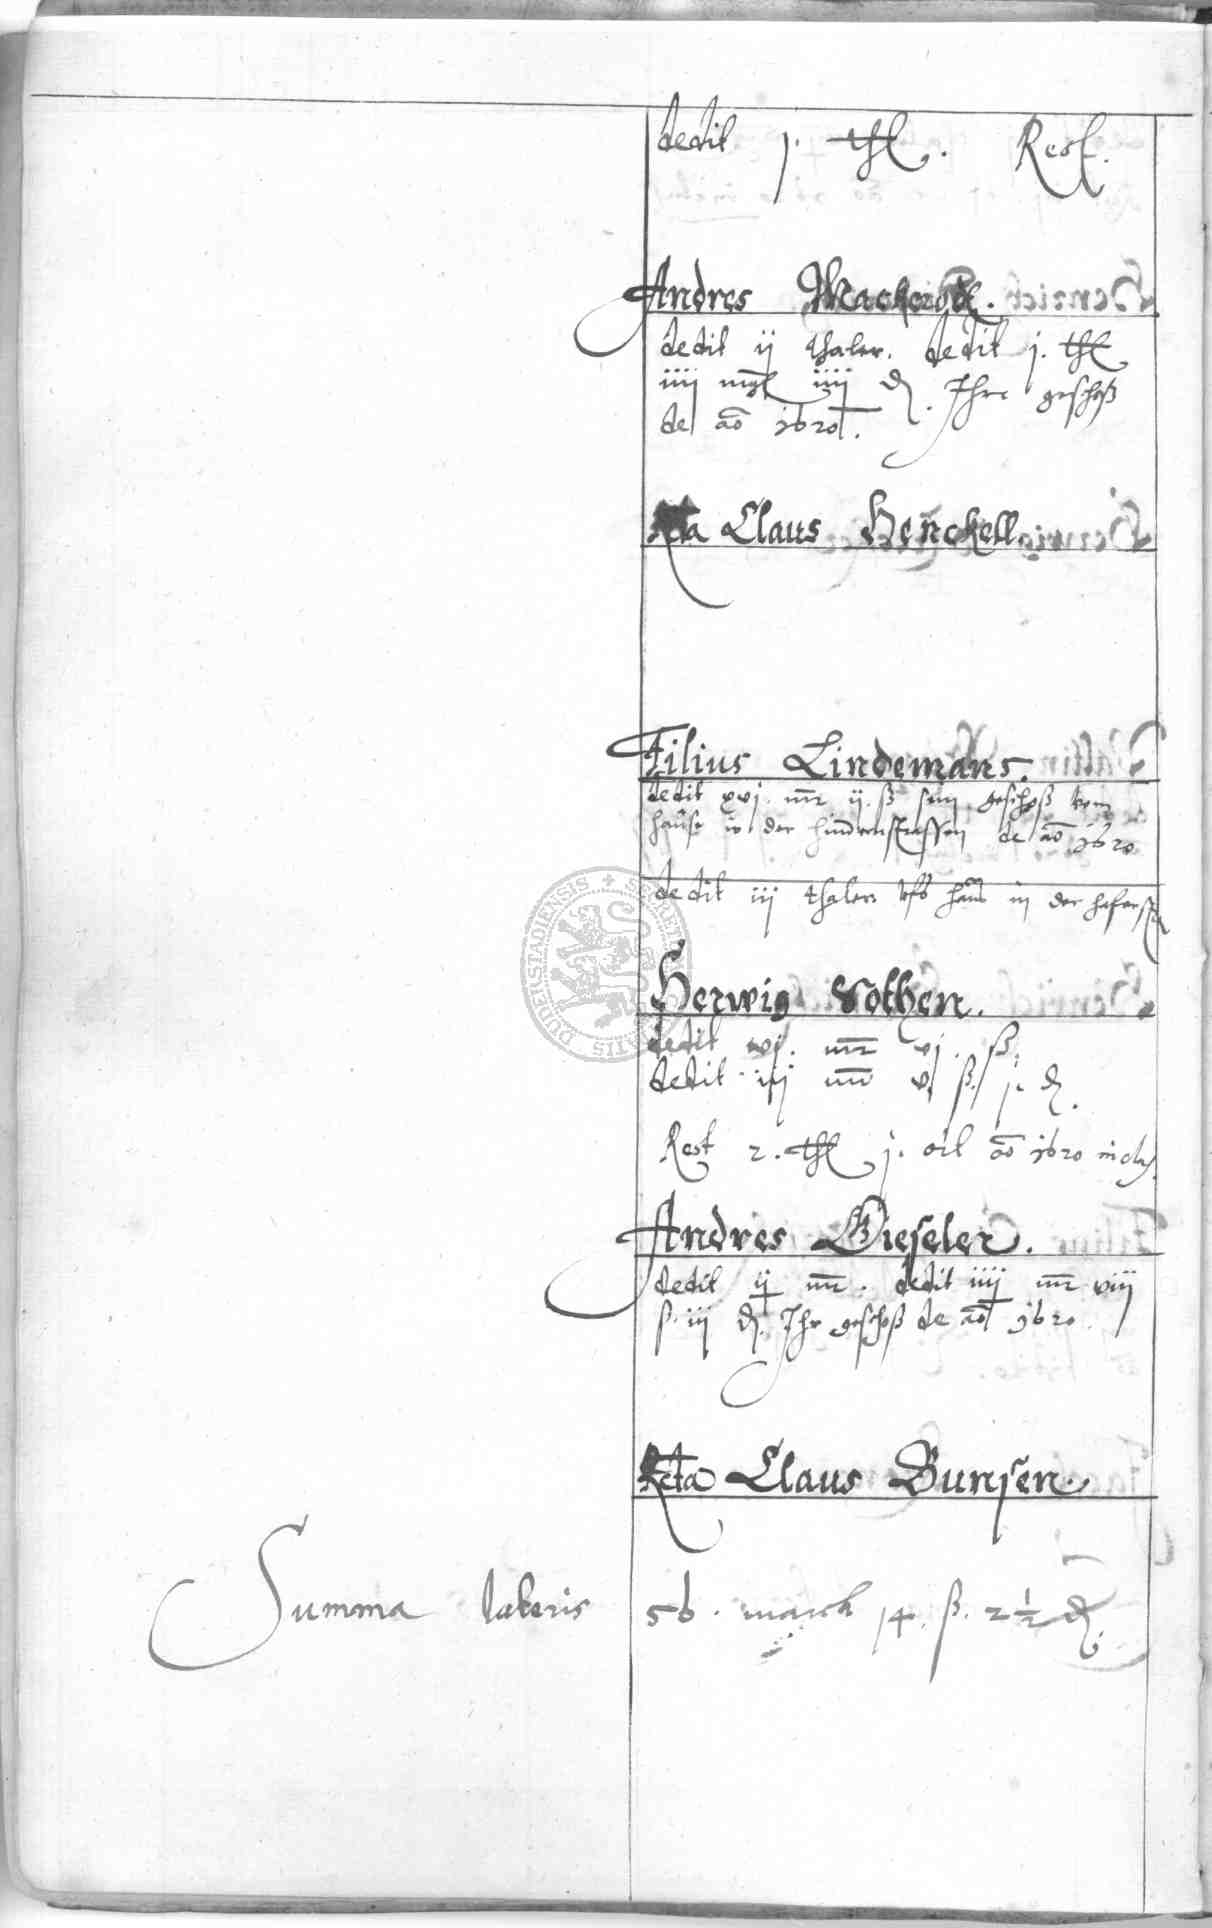 dedit j. thl. Rest.
Andres Mackerodt.
dedit ij thaler. dedit j. thl
iiij mgl iiij d. Ihre geschoß
de ao 1620.
Rcta Claus Henckell.
Filius Lindemans.
dedit xvj. mr ij. ß sein geschoß vom
hause in der hindernstrassen de ao 1620
dedit iij thaler vfs haus in der haferstr
Herwig Sothen.
dedit vj. mr vj. ß.
dedit iij mr v ß. j. d.
Rest 2. thl j. ort ao 1620 inclus.
Andres Gieseler.
dedit ij mr. dedit iiij mr viij
ß. iij d. Ihr geschoß de ao 1620.
Rcta Claus Bunsen.
Summa lateris 56. marck 14. ß. 2 1/2 d.
SECRET DUDERSTADIENSIS